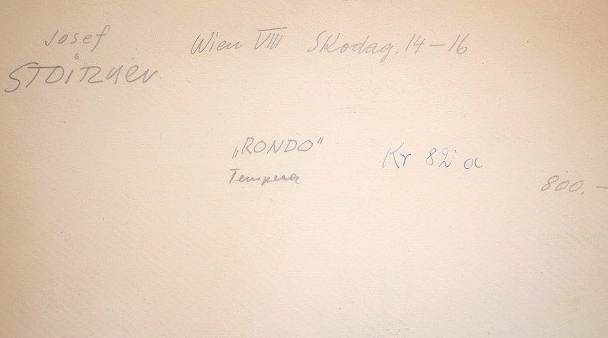 Josef Wien VIII Skodag. 14-16
STOITZNER
„RONDO“ Kr 82 a
Tempera
800.-